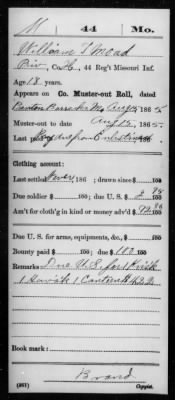 M 44 Mo.
William T Moad
Pvt, Co. H, 44 Reg't Missouri Inf.
Age 18 years.
Appears on Co. Muster-out Roll, dated
Benton Barracks Mo Aug 15 1865.
Muster-out to date Aug 15, 1865.
Last paid to
Clothing account:
Last settled Never, 186 ; drawn since $ 100
Due soldier $ 100; due U.S. $ 100
Am't for cloth'g in kind or money adv'd $ 100
Due U.S. for arms, equipments, &c., $ 100
Bounty paid $ 100; due $ 100 100
Remarks: Due U.S. for 1
1 Canteen
Book mark:
Brand
(361) Copyist.